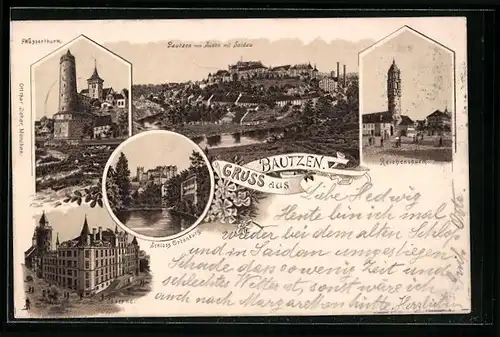 Wasserthurm.
Bautzen von Süden mit Seidau
Ottmar Zieher, München.
Reichenthurm.
GRUSS aus
BAUTZEN.
Schloss Ortenburg.
Kaserne.
Liebe Hedwig
Heute bin ich mal
wieder bei dem alten
und in umgestiegen
Schade das so wenig Zeit und
schlechtes Wetter ist, sonst wäre ich
auch nach Margareth Herzlichen